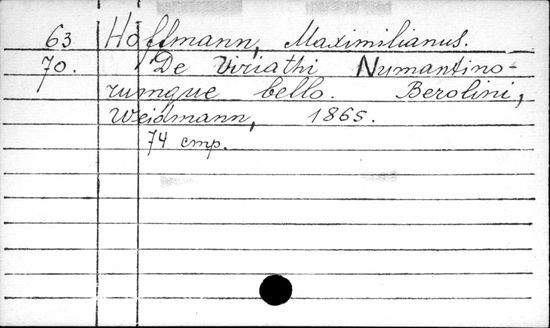 63 Hoffmann, Maximilianus.
70. De Viriathi Numantino-
rumque bello. Berolini,
Weidmann, 1865.
74 стр.